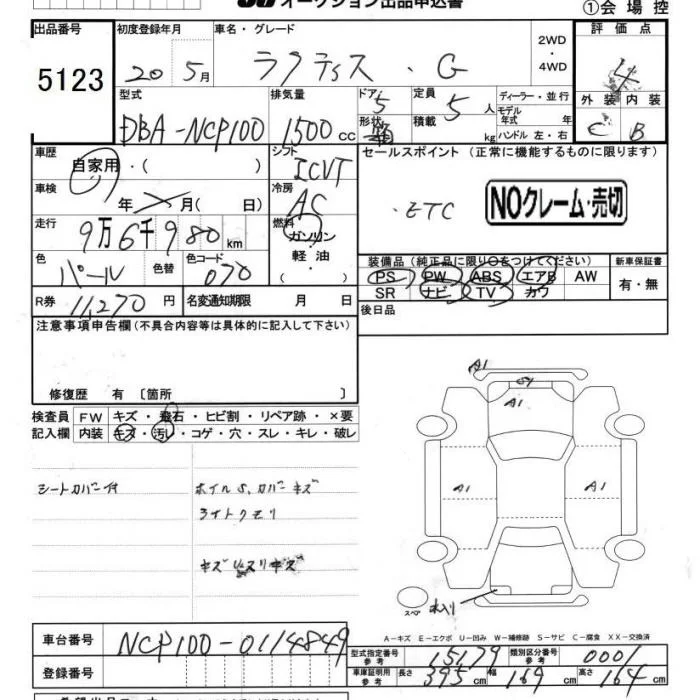 オークション出品申込書
①会場控
出品番号 初度登録年月 車名・グレード 評価点
5123 20 5月 ラクティス・G 2WD・4WD 4
型式 排気量 ドア 定員 ディーラー・並行 外装 内装
DBA-NCP100 1500cc 5 5人 モデル年式 年 C B
形状 積載 kg ハンドル 左・右
車歴 シフト セールスポイント (正常に機能するものに限ります)
自家用・( ) ICVT
車検 年 月( 日) 冷房 AC ・ETC NOクレーム・売切
走行 9万6千980km 燃料 ガソリン
軽油・( )
色 パール 色替 色コード 070
装備品(純正品に限り○をつけてください) 新車保証書
PS PW ABS エアB AW 有・無
SR ナビ TV カワ
R券 11,270円 名変通知期限 月 日 後日品
注意事項申告欄(不具合内容等は具体的に記入して下さい)
修復歴 有 〔箇所 〕
検査員 FW キズ・飛石・ヒビ割・リペア跡・×要
記入欄 内装 キズ・汚レ・コゲ・穴・スレ・キレ・破レ
シートカバー付 ホイルS.カバーキズ
ライトクモリ
A1
A1
A1 A1
スペア
A−キズ E−エクボ U−凹み W−補修跡 S−サビ C−腐食 XX−交換済
車台番号 NCP100-0114849
型式指定番号 参考 15179 類別区分番号 参考 0001
登録番号
車庫証明用 参考 長さ 395cm 幅 169cm 高さ 164cm